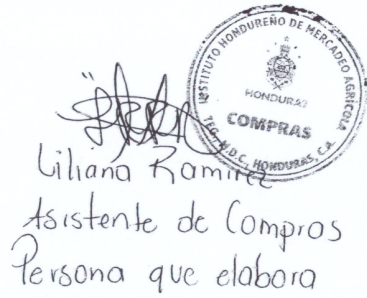 INSTITUTO HONDUREÑO DE MERCADEO AGRÍCOLA
HONDURAS
COMPRAS
TEG. M.D.C. HONDURAS, C.A.
Liliana Ramirez
Asistente de Compras
Persona que elabora